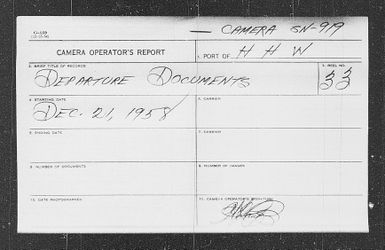 — CAMERA SN-919
CAMERA OPERATOR'S REPORT
1. PORT OF H H W
2. BRIEF TITLE OF RECORDS
DEPARTURE DOCUMENTS
3. REEL NO.
33
4. STARTING DATE
DEC. 21, 1958
5. CARRIER
6. ENDING DATE
7. CARRIER
8. NUMBER OF DOCUMENTS
9. NUMBER OF IMAGES
10. DATE PHOTOGRAPHED
11. CAMERA OPERATOR'S SIGNATURE